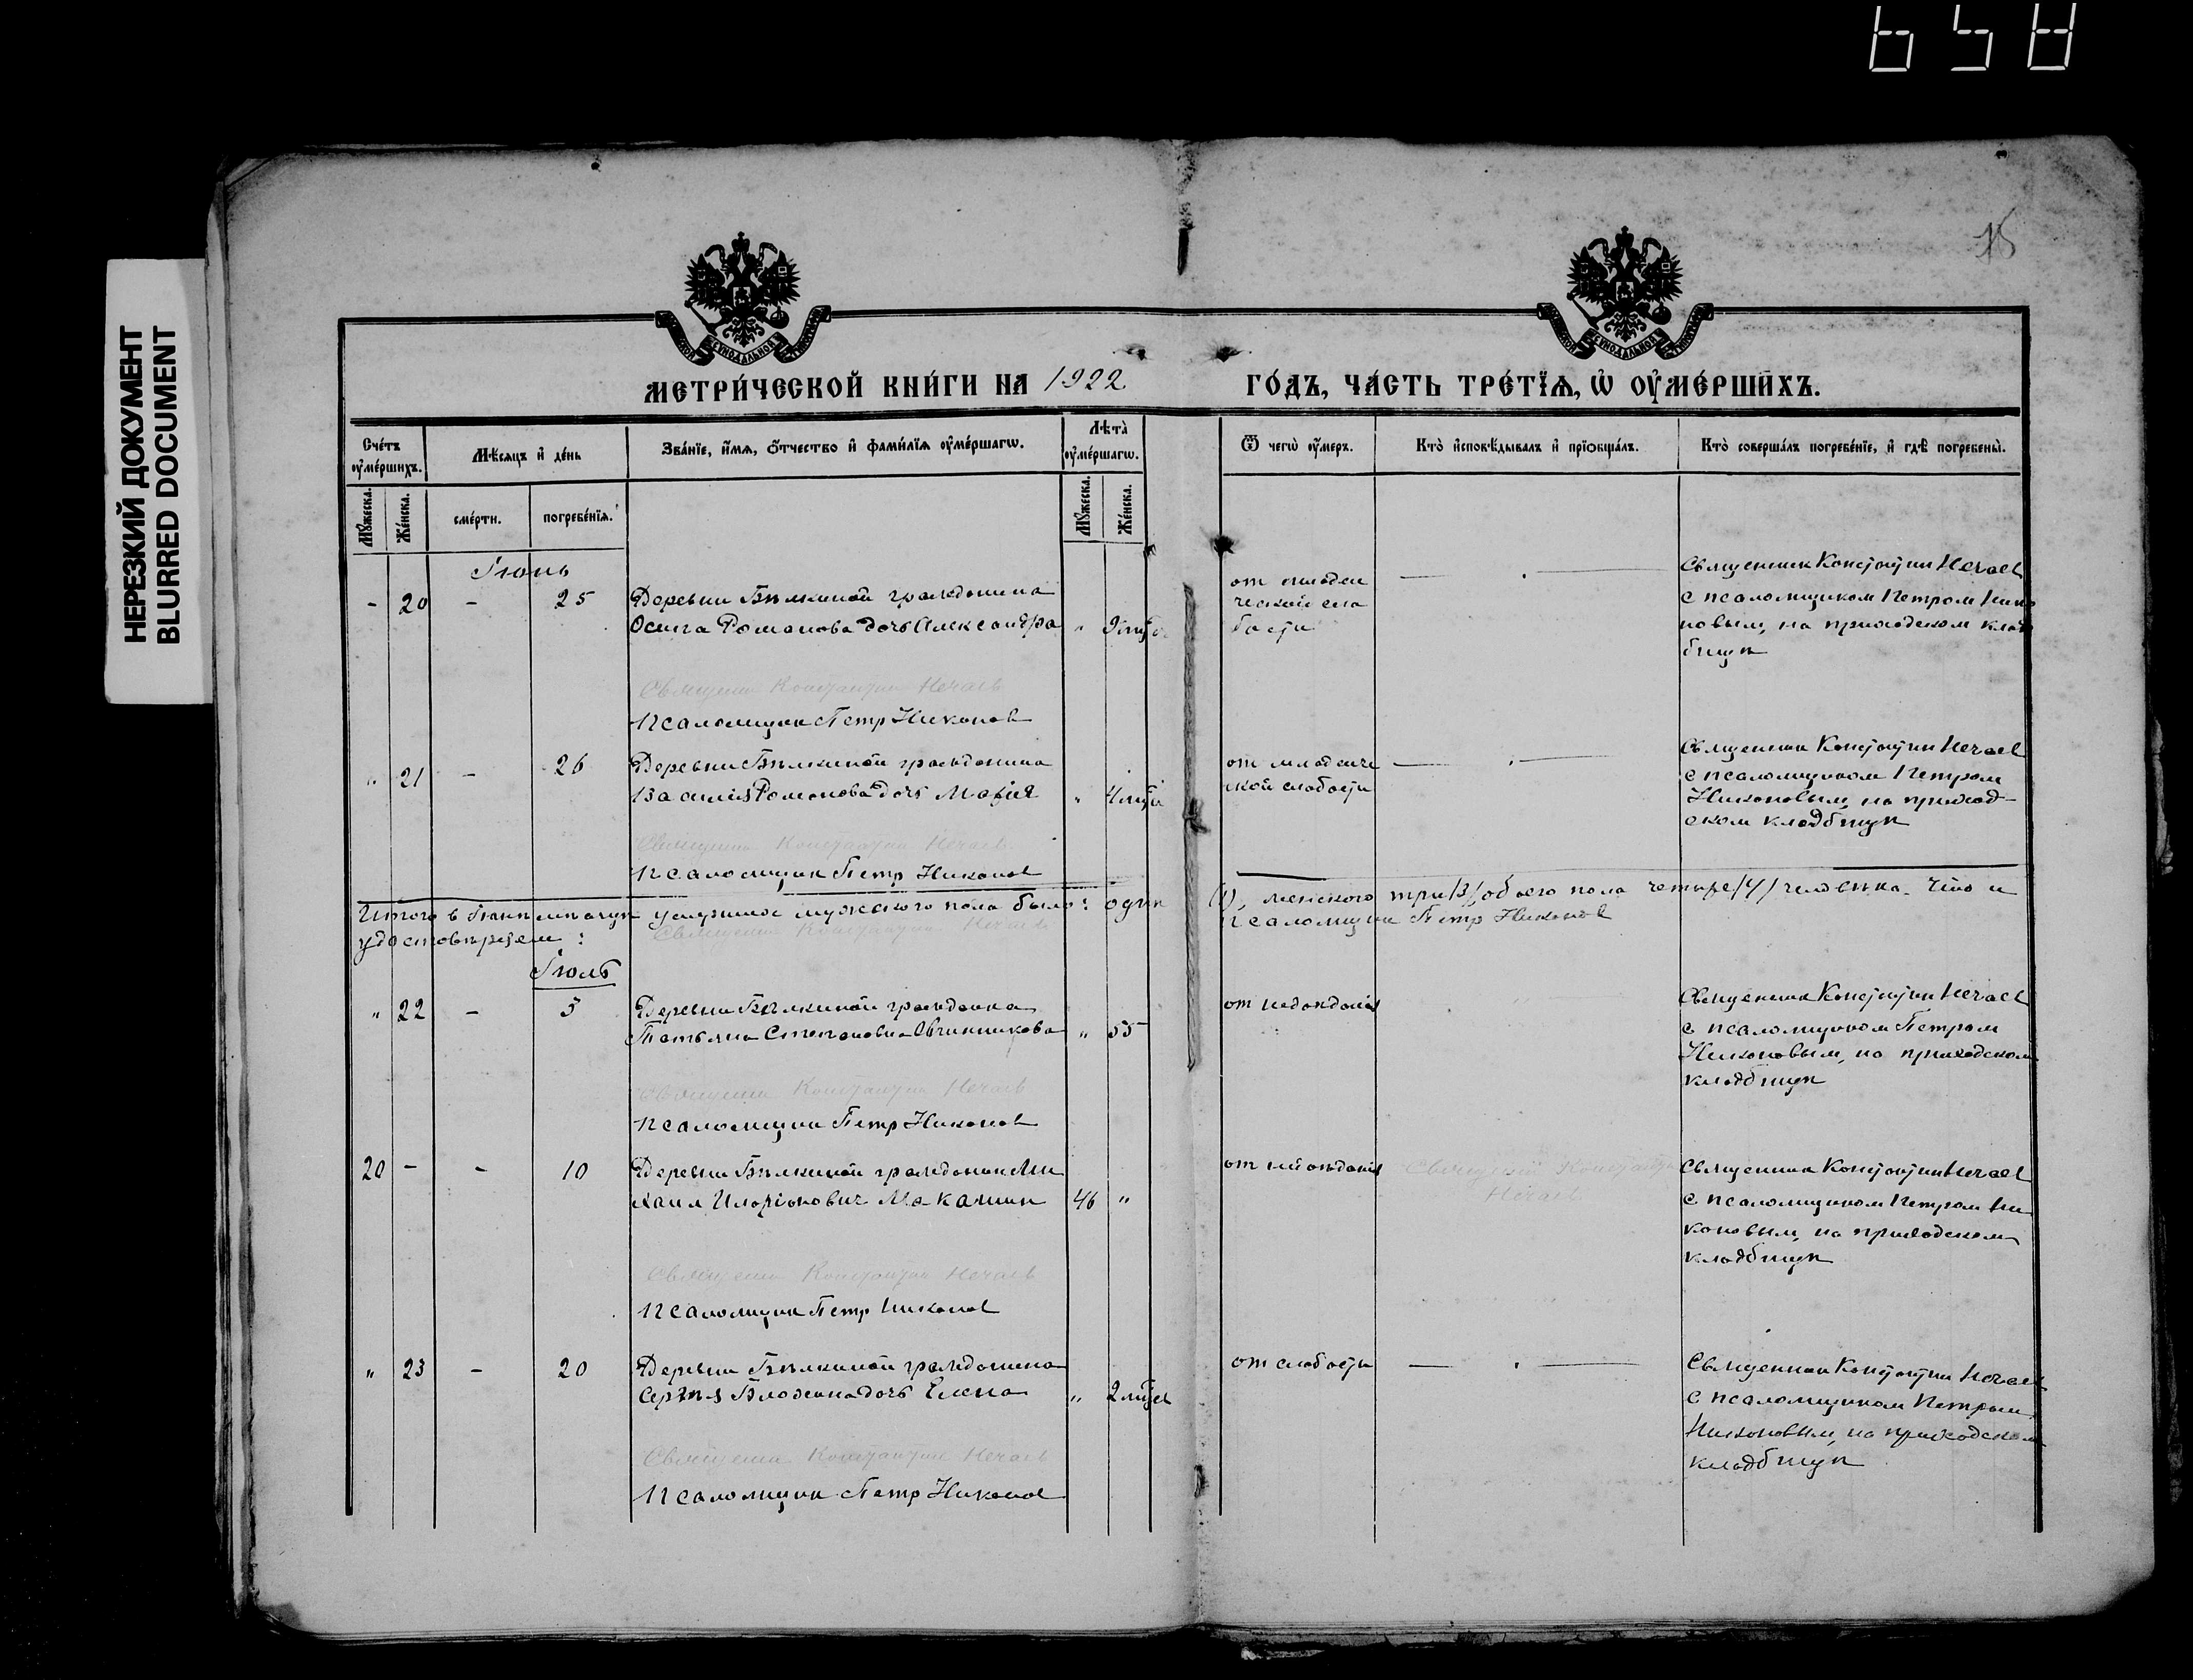 658
НЕРЕЗКИЙ ДОКУМЕНТ
BLURRED DOCUMENT
МЕТРИ́ЧЕСКОЙ КНИ́ГИ НА 1922 ГО́ДЪ, ЧА́СТЬ ТРЕ́ТЇЯ, Ѡ ОУ҆МЕ́РШИХЪ.
Сче́тъ оумершихъ.
Мѣсяцъ и де́нь
Зва́нїе, и́мя, о́тчество и фами́лїя оуме́ршагѡ.
Лѣта̀ оуме́ршагѡ.
Ѿ чегѡ̀ оу́меръ.
Кто̀ исповѣ́дывалъ и прїобща́лъ.
Кто̀ соверша́лъ погребе́нїе, и гдѣ̀ погребены̀.
Му́жеска.
Же́нска.
сме́рти.
погребе́нїя.
Му́жеска.
Же́нска.
Іюнь
- 20 - 25 Деревни Бѣлкиной гражданина
Осипа Романова дочь Александра " 9
от младен
ческой сла
бости
Священник Константин Нечаев
с псаломщиком Петром Нико
новым, на приходском клад
бищѣ
Священник Константин Нечаев
Псаломщик Петр Никонов
" 21 - 26 Деревни Бѣлкиной гражданина
Василія Романова дочь Марія " 4
от младенче
ской слабости
Священник Константин Нечаев
с псаломщиком Петром
Никоновым, на приход-
ском кладбищѣ
Священник Константин Нечаев
Псаломщик Петр Никонов
Итого в Іюнѣ мѣсяцѣ умерших мужского пола было: один (1), женского три /3/, обоего пола четыре /4/ человѣка. Что и
удостовѣряем: Священник Константин Нечаев Псаломщик Петр Никонов
Іюль
" 22 - 5 Деревни Бѣлкиной гражданка
Татьяна Степановна Овчинникова " 55
от недоѣданія
Священник Константин Нечаев
с псаломщиком Петром
Никоновым, на приходском
кладбищѣ
Священник Константин Нечаев
Псаломщик Петр Никонов
20 - - 10 Деревни Бѣлкиной гражданин Ми
хаил Иларіонович Макашин 46 "
от недоѣданія
Священник Константин
Нечаев
Священник Константин Нечаев
с псаломщиком Петром Ни
коновым, на приходском
кладбищѣ
Священник Константин Нечаев
Псаломщик Петр Никонов
" 23 - 20 Деревни Бѣлкиной гражданина
Сергѣя дочь Елена " 2
от слабости
Священник Константин Нечаев
с псаломщиком Петром
Никоновым, на приходском
кладбищѣ
Священник Константин Нечаев
Псаломщик Петр Никонов